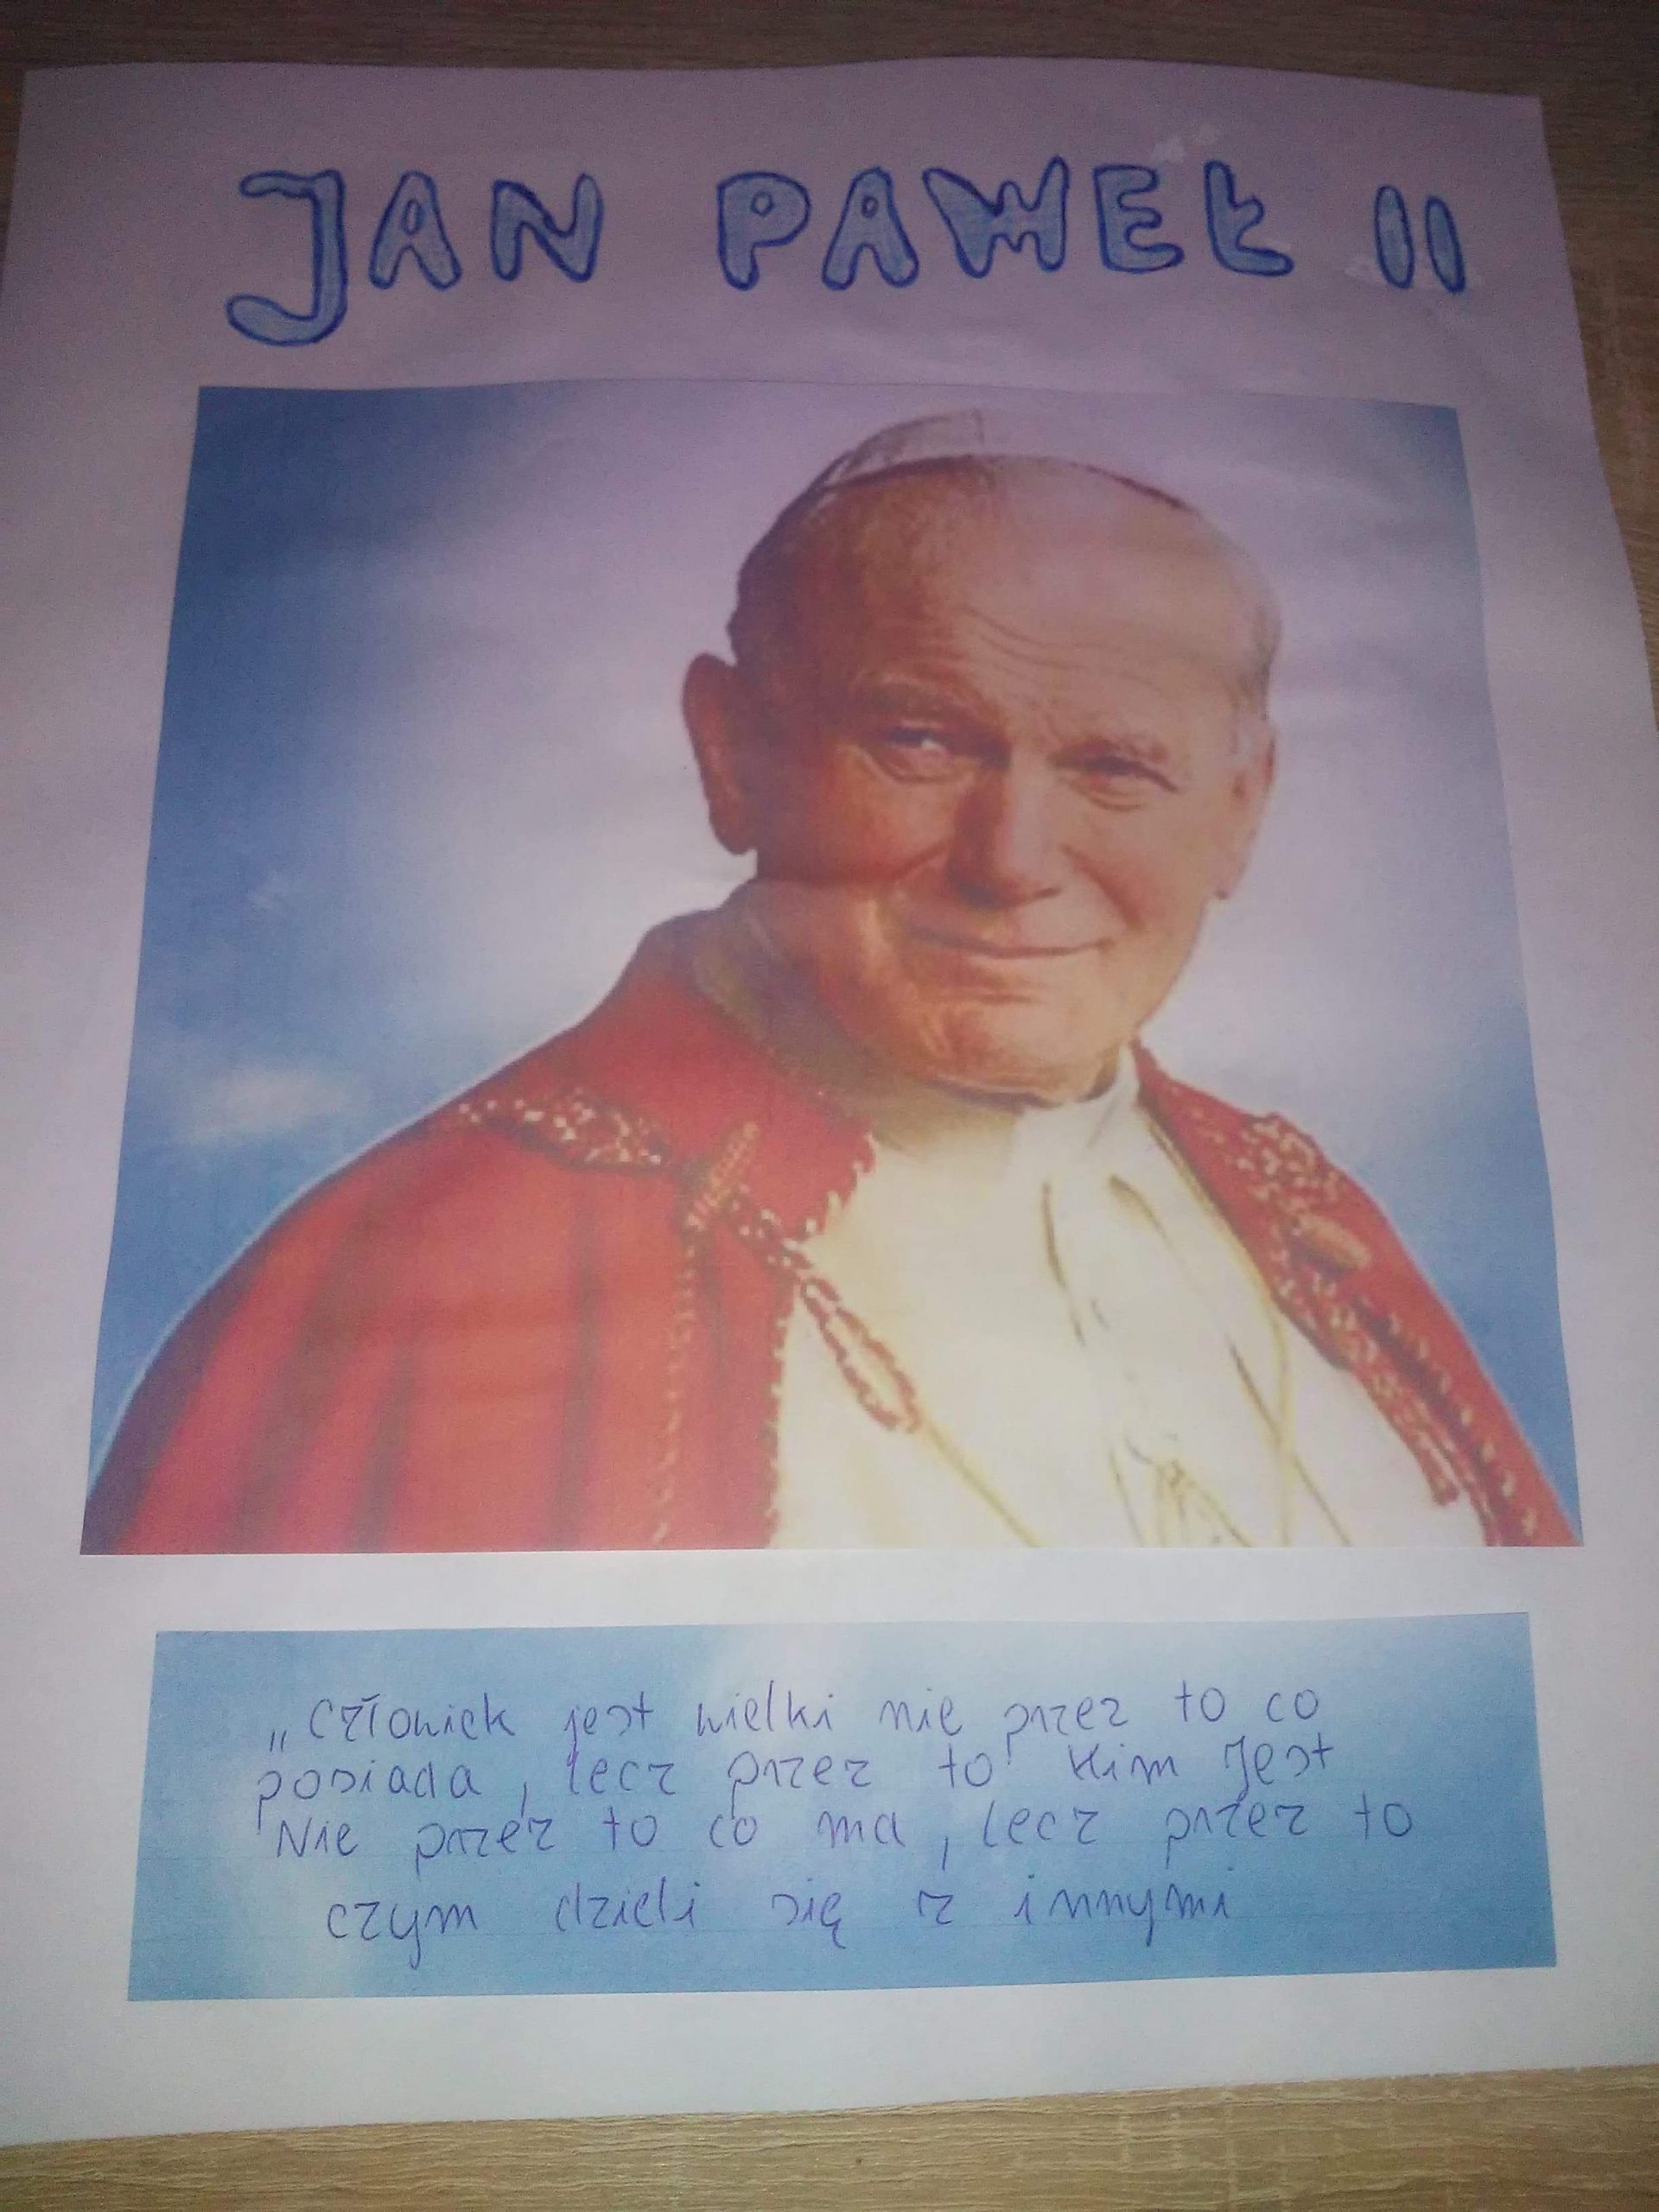 JAN PAWEŁ II
„Człowiek jest wielki nie przez to co
posiada, lecz przez to kim jest
Nie przez to co ma, lecz przez to
czym dzieli się z innymi